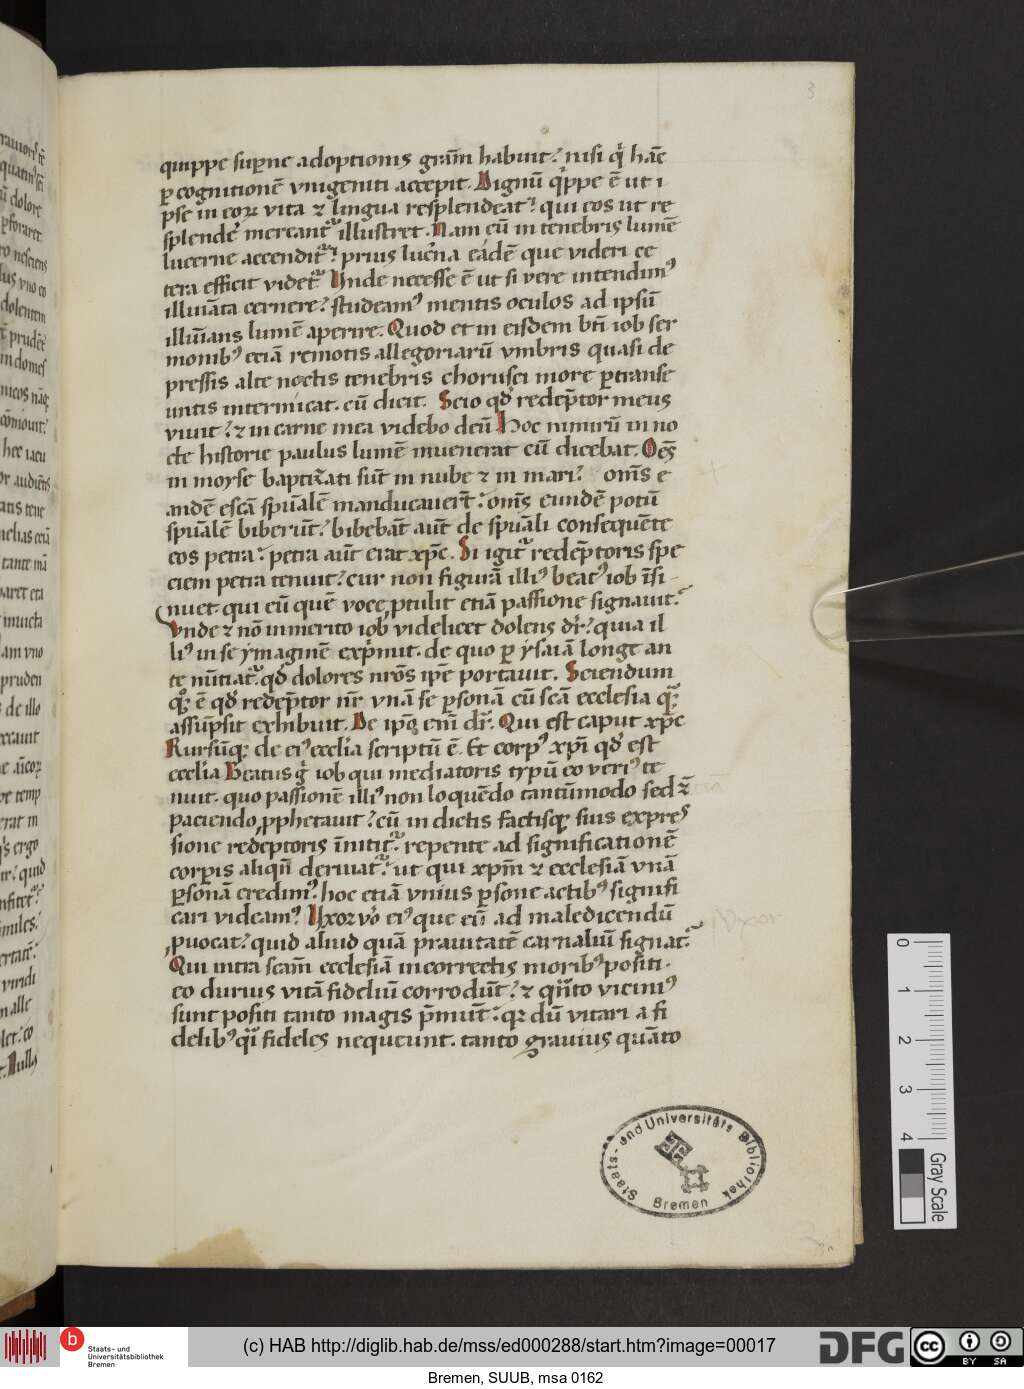 3
quippe suꝑne adoptionis gratiā habuit? nisi qͥ hāc
ꝑ cognitionē vnigeniti accepit. Dignū qͥppe ē ut i
pse in eoꝝ vita ⁊ lingua resplendeat? qui eos ut re
splendeāt mercantᷣ illustret. Nam cū in tenebris lumē
lucerne accenditᷣ? prius lucͤna eadē que videri ce
tera efficit videtᷣ. Vnde necesse ē ut si vere intendimꝰ
illuīata cernere? studeamꝰ mentis oculos ad ipsū
illuīans lumē aperire. Quod et in eisdem bti iob ser
monibꝰ eciā remotis allegoriarū vmbris quasi de
pressis alte noctis tenebris chorusci more ꝑtranse
untis intermicat. cū dicit. Scio qd redēptor meus
viuit? ⁊ in carne mea videbo deū Hoc nimirū in no
cte historie paulus lumē inuenerat cū dicebat. Oēs
in moyse baptizati sūt in nube ⁊ in mari? omīs e
andē escā spūalē manducauerūt? omīs eundē potū
spūalē biberūt? bibebāt aūt de spūali consequēte
eos petra? petra aūt erat xpc. Si igitᷣ redēptoris spe
ciem petra tenuit? cur non figurā illiꝰ beatꝰ iob īsi
nuet. qui eū quē voce ꝓtulit etiā passione signauit?
Vnde ⁊ nō inmerito iob videlicet dolens dr̄? quia il
liꝰ in se ymaginē expͥmit. de quo ꝑ ysaiā longe an
te nūtiatᷣ. qd dolores nr̄os ip̄e portauit. Sciendum
qꝫ ē qd redēptor nr̄ vnā se ꝑsonā cū scā ecclesia quā
assūpsit exhibuit. De ipo eni dr̄. Qui est caput xpc
Rursūqꝫ de eiꝰ eccl̄ia scriptū ē. Et corpꝰ xpi qd est
eccl̄ia Beatus gͦ iob qui mediatoris typū eo veriꝰ te
nuit. quo passionē illiꝰ non loquēdo tantūmodo sed ⁊
paciendo ꝓphetauit? cū in dictis factisqꝫ suis expres
sione redēptoris īnititᷣ? repente ad significationē
corꝑis aliqn̄ deriuatᷣ? ut qui xpm ⁊ ecclesiā vnā
ꝑsonā credimꝰ? hoc etiā vnius ꝑsone actibꝰ signifi
cari videamꝰ Vxor vͦo eiꝰ que eū ad maledicendū
ꝓuocat? quid aliud quā prauitatē carnaliū signat?
Qui intra scam ecclesiā incorrectis moribꝰ positi.
eo durius vitā fideliū corrodūt? ⁊ qn̄to viciniꝰ
sunt positi tanto magis p̄mūt? qꝛ dū vitari a fi
delibꝰ qͣi fideles nequeunt. tanto grauius quāto
Staats- und Universitäts Bibliothek
Bremen
0 1 2 3 4 Gray Scale
Staats- und
Universitätsbibliothek
Bremen
(c) HAB http://diglib.hab.de/mss/ed000288/start.htm?image=00017
DFG
cc BY SA
Bremen, SUUB, msa 0162